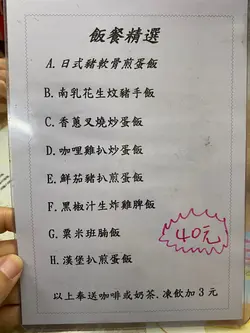 飯餐精選
A. 日式豬軟骨煎蛋飯
B. 南乳花生炆豬手飯
C. 香蔥叉燒炒蛋飯
D. 咖哩雞扒炒蛋飯
E. 鮮茄豬扒煎蛋飯
F. 黑椒汁生炸雞脾飯
G. 粟米班腩飯
H. 漢堡扒煎蛋飯
40元
以上奉送咖啡或奶茶.凍飲加3元